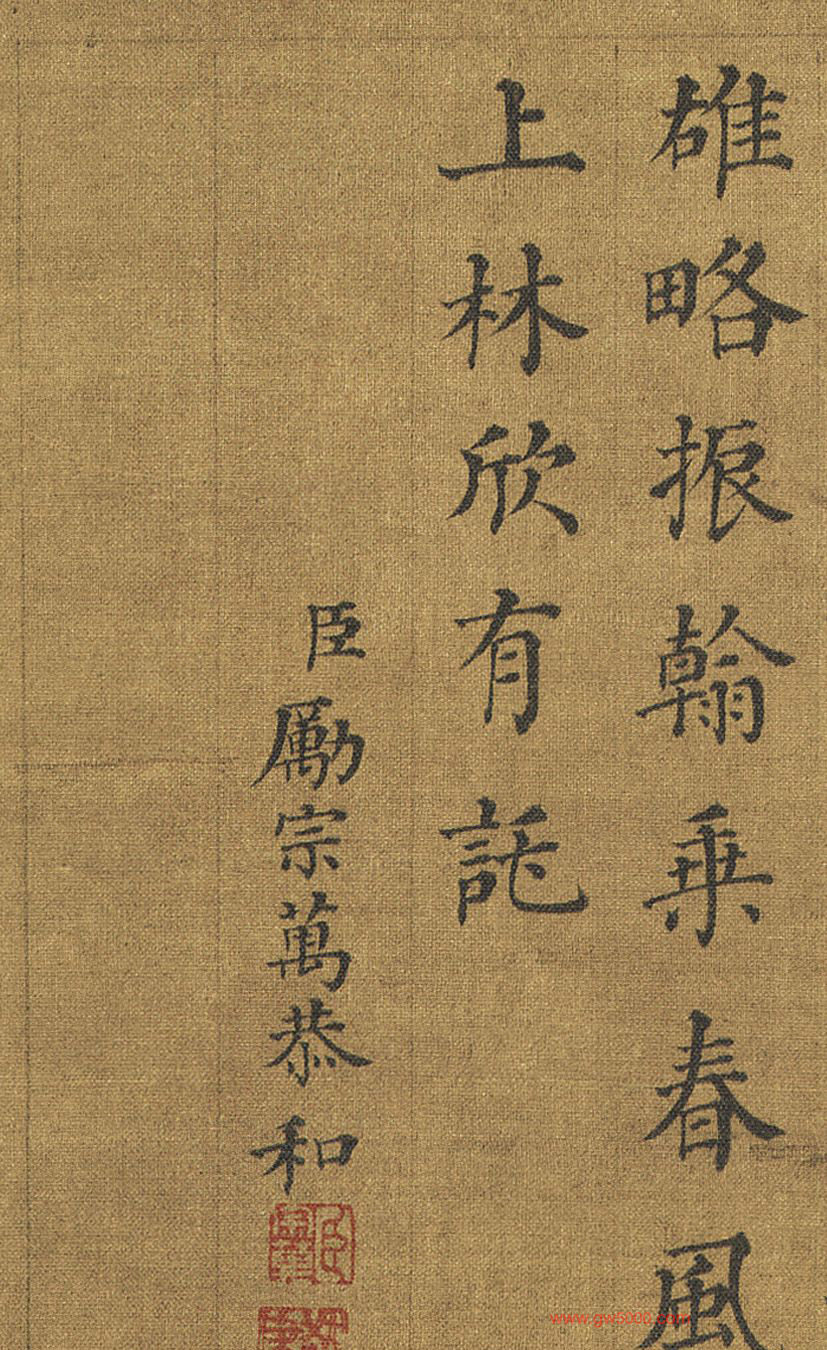 雄略振翰乗春風
上林欣有託
臣勵宗萬恭和
www.gw5000.com